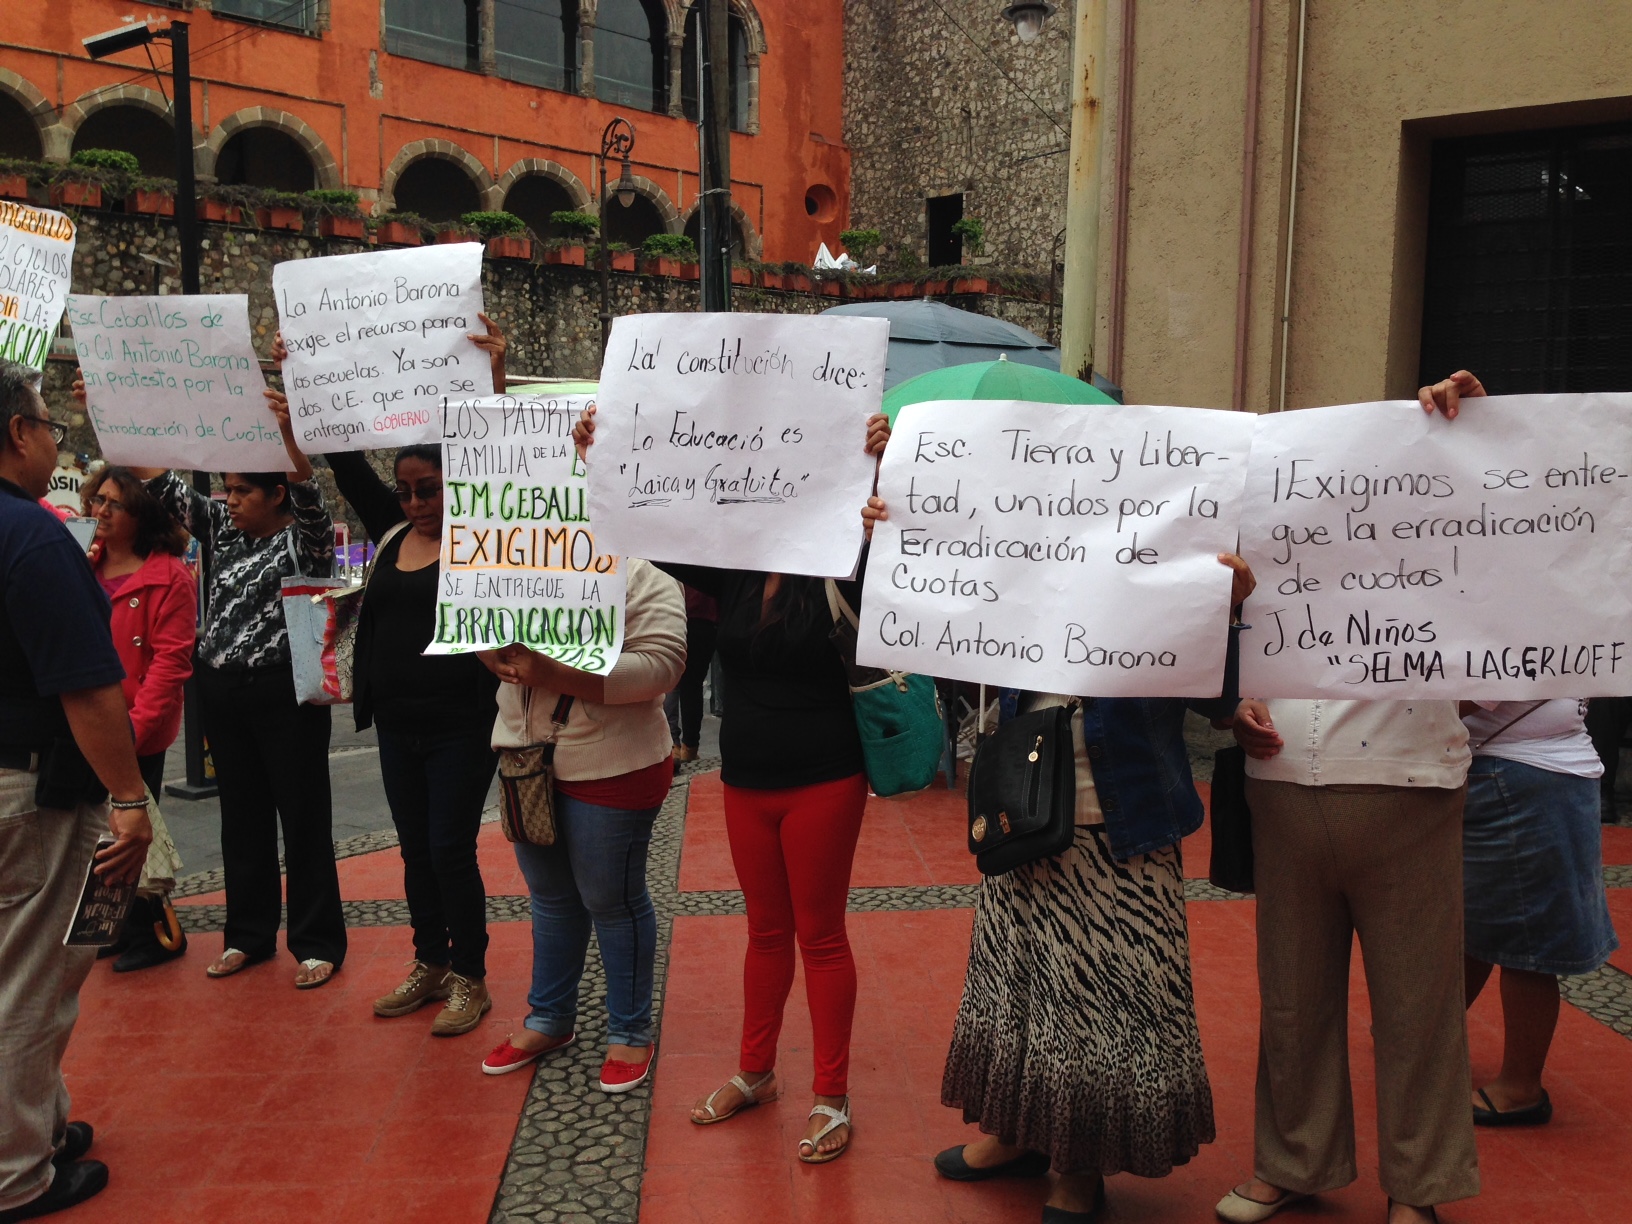 MGEBALLOS
2 CICLOS
OLARES
BIR LA:
CACIÓN
Esc Ceballos de
la Col Antonio Barona
en protesta por la
Erradicación de Cuotas
La Antonio Barona
exige el recurso para
las escuelas. Ya son
dos C.E. que no se
entregan. GOBIERNO
LOS PADRE
FAMILIA DE LA E
J.M. CEBALL
EXIGIMOS
SE ENTREGUE LA
ERRADICACIÓN
La constitución dice:
La Educació es
"Laica y Gratuita"
Esc. Tierra y Liber-
tad, unidos por la
Erradicación de
Cuotas
Col. Antonio Barona
¡Exigimos se entre-
gue la erradicación
de cuotas!
J. de Niños
"SELMA LAGERLOFF